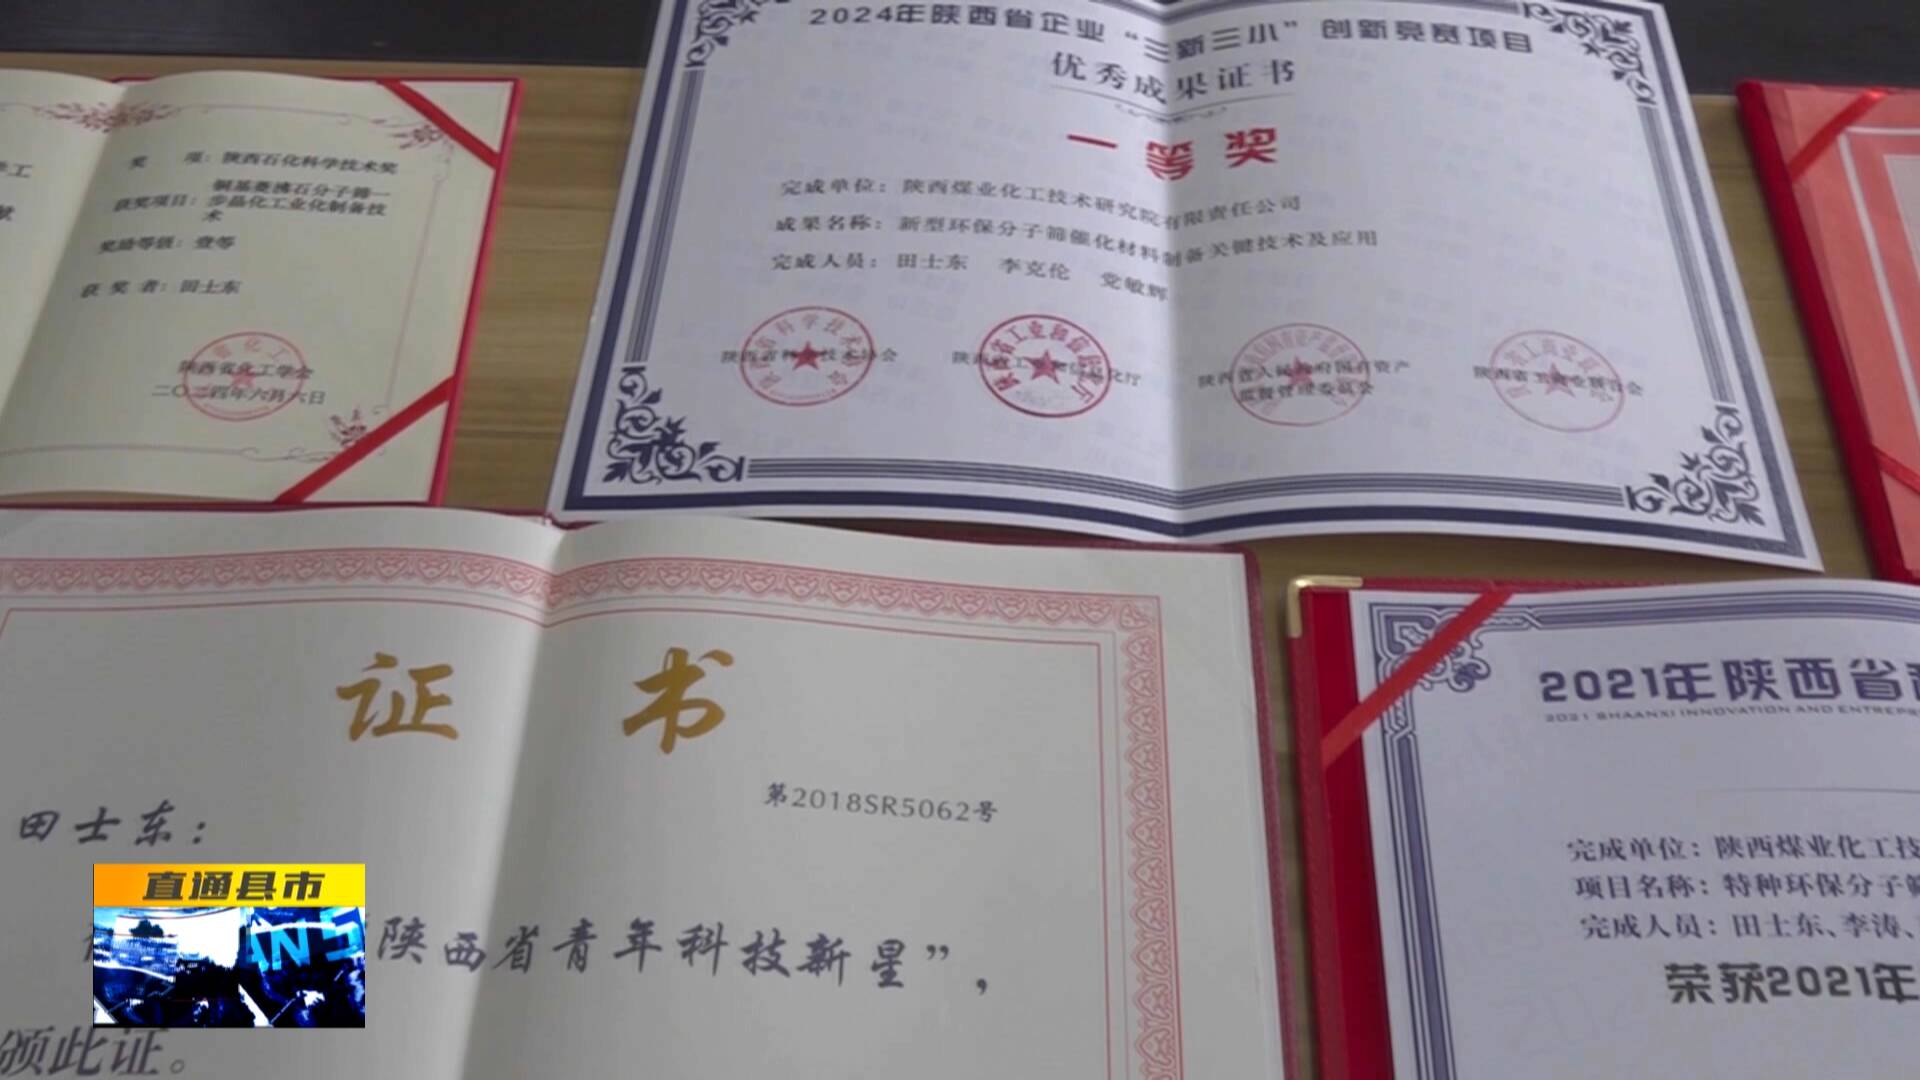 2024年陕西省企业“三新三小”创新竞赛项目
优秀成果证书
一等奖
完成单位：陕西煤业化工技术研究院有限责任公司
成果名称：新型环保分子筛催化材料制备关键技术及应用
完成人员：田士东 李克伦 党敏辉
陕西省科学技术协会
陕西省工业和信息化厅
陕西省人民政府国有资产
监督管理委员会
陕西省工商业联合会
奖 项：陕西石化科学技术奖
获奖项目：铜基菱沸石分子筛一
步晶化工业化制备技
术
奖励等级：壹等
获奖者：田士东
陕西省化工学会
二〇二四年六月六日
证书
第2018SR5062号
田士东：
陕西省青年科技新星”，
颁此证。
2021年陕西省
2021 SHAANXI INNOVATION AND
完成单位：陕西煤业化工技
项目名称：特种环保分子筛
完成人员：田士东、李涛、
荣获2021年
直通县市